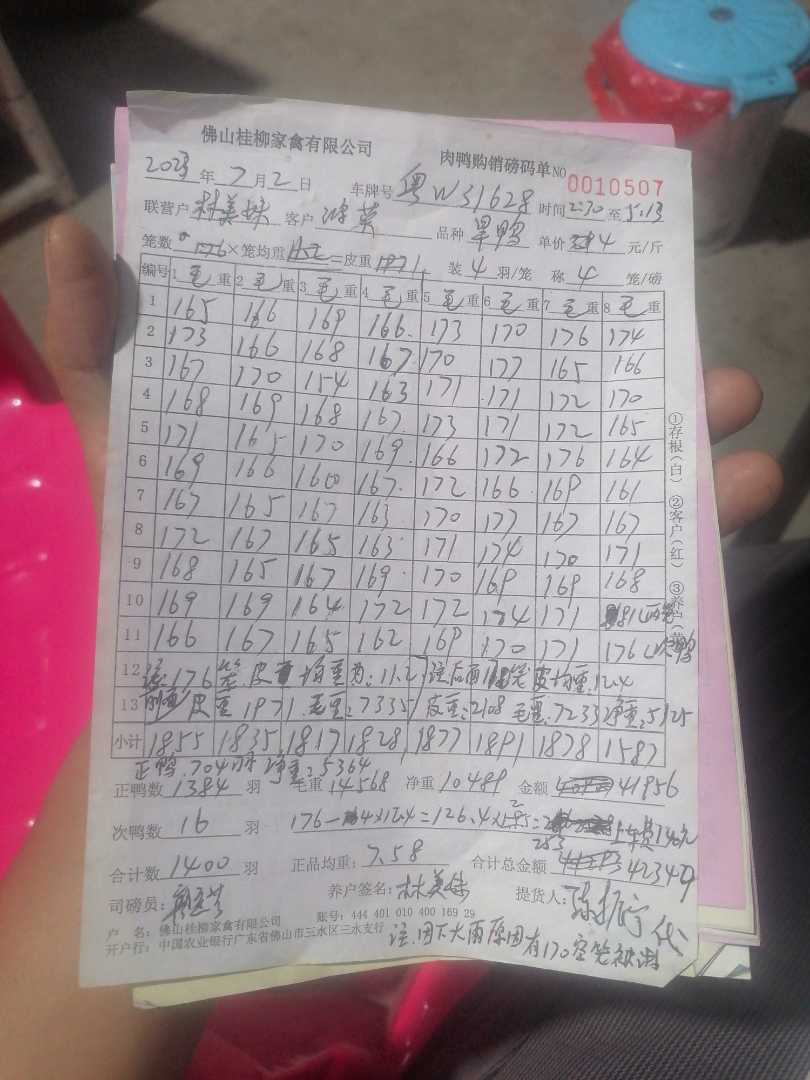 佛山桂柳家禽有限公司 肉鸭购销磅码单 NO 0010507
2023年7月2日 车牌号 粤W31628 时间2:30至5:13
联营户 林美妹 客户 品种 旱鸭 单价 4 元/斤
笼数 176×笼均重11.2=皮重1971. 装4羽/笼 称4笼/磅
编号 1毛重 2毛重 3毛重 4毛重 5毛重 6毛重 7毛重 8毛重
1 165 166 169 166 173 170 176 174
2 173 166 168 167 170 177 165 166
3 167 170 154 163 171 171 172 170
4 168 169 168 167 173 171 172 165
5 171 165 170 169 166 172 176 164
6 169 166 160 167 172 166 169 161
7 167 165 167 163 170 177 167 167
8 172 167 165 163 171 174 170 171
9 168 165 167 169 170 169 169 168
10 169 169 164 172 172 174 171 81
11 166 167 165 162 169 170 171 176 次鸭
12 176笼皮重均重为:11.2 注后面 笼皮均重:12.4
13 皮重1971.毛重:7335 皮重:2108 毛重:7233 净重:5125
小计 1855 1835 1817 1828 1877 1891 1878 1587
正鸭.704 净重:5364
正鸭数 1384 羽 毛重 14568 净重 10489 金额 41956
次鸭数 16 羽 176-4×12.4=126.4× 253 上车费140元
合计数 1400 羽 正品均重: 7.58 合计总金额 42349
司磅员: 养户签名: 林美妹 提货人: 代
户 名: 佛山桂柳家禽有限公司 账号: 444 401 010 400 169 29
开户行: 中国农业银行广东省佛山市三水区三水支行
注.因下大雨原因有170空笼被淋
①存根(白) ②客户(红) ③养户